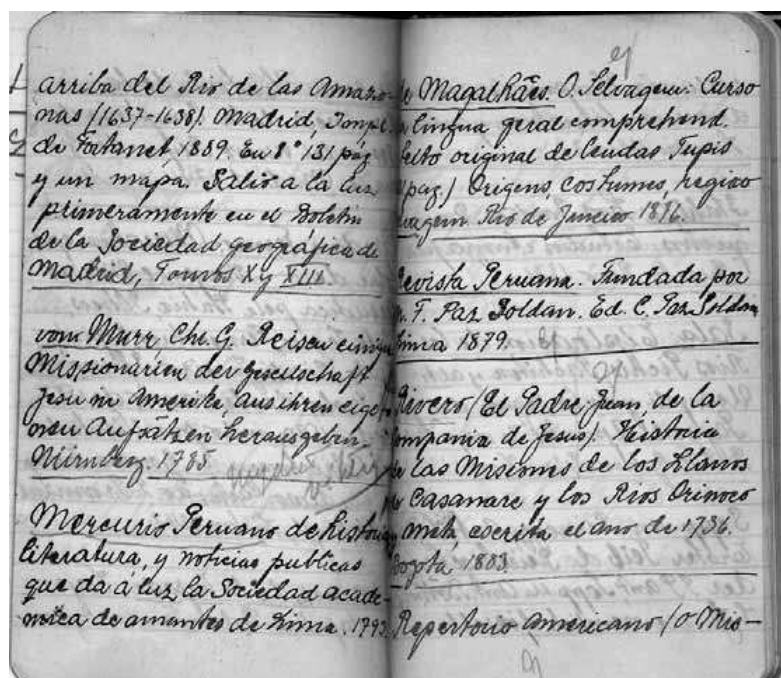 arriba del Rio de las Amazo-
nas (1637-1638). Madrid, Impt.
de Fortanet, 1889. En 8° 131 pág
y un mapa. Salió a la luz
primeramente en el Boletin
de la Sociedad geográfica de
Madrid, Tomos X y XIII
vom Murr Chr. G. Reisen einiger
Missionarien der Gesellschaft
Jesu in Amerika, aus ihren eige-
nen Aufsätzen herausgeben.
Nürnberg. 1785
Mercurio Peruano de historia,
literatura, y noticias publicas
que da á luz la Sociedad acade-
mica de amantes de Lima. 1793
de Magalhães. O. Selvagem: Curso
lingua geral comprehend.
texto original de lendas Tupis
pag.) Origens, costumes, regiao
selvagem. Rio de Janeiro 1876.
Revista Peruana. Fundada por
M. F. Paz Soldan. Ed. C. Paz Soldan
Lima 1879.
Rivero (El Padre Juan, de la
Compania de Jesus). Historia
de las Misiones de los Llanos
de Casanare y los Rios Orinoco
y Meta, escrita el ano de 1736.
Bogotá 1883.
Repertorio Americano (o Mis-